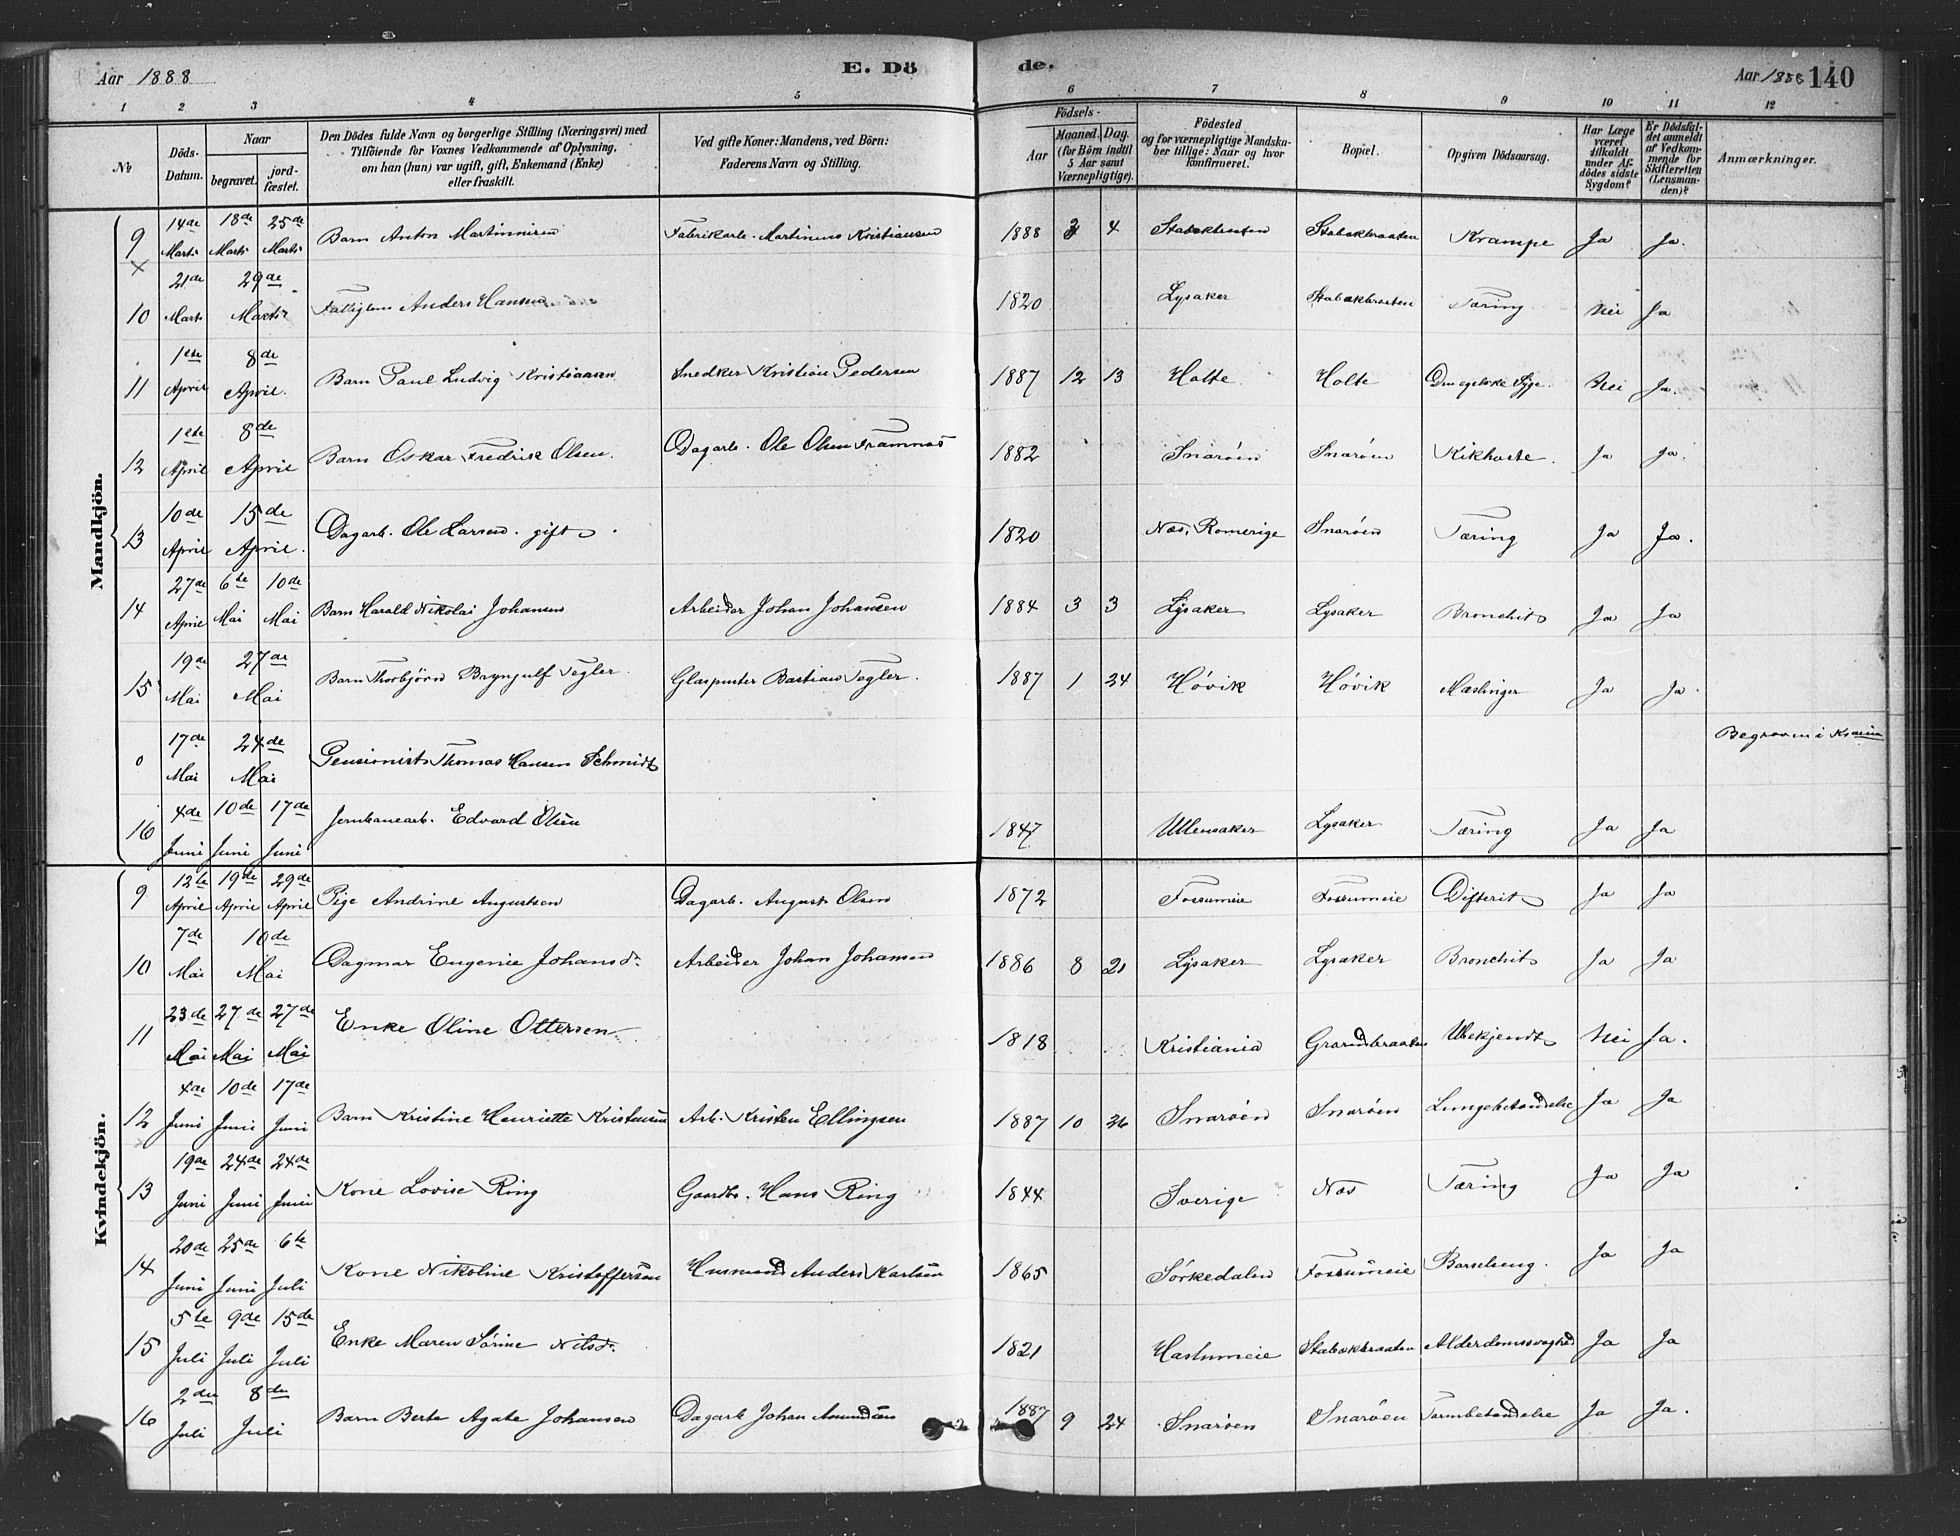 Aar 1888
E. Dö
de.
Aar 1888 140
1 2 3 4 5 6 7 8 9 10 11 12
№
Döds-
Datum.
Naar
begravet.
jord-
fæstet.
Den Dödes fulde Navn og borgerlige Stilling (Næringsvei) med
Tilföiende for Voxnes Vedkommende af Oplysning,
om han (hun) var ugift, gift, Enkemand (Enke)
eller fraskilt.
Ved gifte Koner: Mandens, ved Börn:
Faderens Navn og Stilling.
Födsels-
Aar
Maaned. Dag.
(for Börn indtil
5 Aar samt
Værnepligtige).
Födested
og for værnepligtige Mandska-
ber tillige: Naar og hvor
konfirmeret.
Bopæl.
Opgiven Dödsaarsag.
Har Læge
været
tilkaldt
under Af-
dödes sidste
Sygdom?
Er Dödsfal-
det anmeldt
af Vedkom-
mende for
Skifteretten
(Lensman-
den)?
Anmærkninger.
Mandkjön.
9 14de Marts 18de Marts 25de Marts Barn Anton Martinnisen Fabrikarb. Martinus Kristiansen 1888 4 Stabækbraaten Stabækbraaten Krampe Ja Ja.
10 21de Marts 29de Marts Fattiglem Anders Hansen 1820 Lysaker Stabækbraaten Tæring Nei Ja
11 1ste April 8de April. Barn Paul Ludvig Kristiansen Snedker Kristian Pedersen 1887 12 13 Holte Holte Den engelske Syge. Nei Ja.
12 1ste April 8de April Barn Oskar Fredrik Olsen. Dagarb. Ole Olsen Framnæs 1882 Snaröen Snaröen Kikhoste. Ja Ja.
13 10de April 15de April. Dagarb. Ole Larsen. gift 1820 Næs, Romerige Snaröen Tæring Ja Ja.
14 27de April 6te Mai 10de Mai Barn Harald Nikolai Johansen Arbeider Johan Johansen 1884 3 3 Lysaker Lysaker Bronchit Ja Ja
15 19de Mai 27de Mai Barn Thorbjörn Brynjulf Tegler. Glaspuster Bastian Tegler. 1887 1 24 Hövik Hövik Mæslinger Ja Ja.
0 17de Mai 24de Mai Pensionist Thomas Hansen Schmidt Begraven i Krania
16 4de Juni 10de Juni 17de Juni Jernbanearb. Edvard Olsen 1847 Ullensaker Lysaker Tæring Ja Ja
Kvindekjön.
9 12te April 19de April 29de April Pige Andrine Augustsen Dagarb. August Olsen 1872 Fossumeie Fossumeie Difterit Ja Ja
10 7de Mai 10de Mai Dagmar Eugenie Johansd. Arbeider Johan Johansen 1886 8 21 Lysaker Lysaker Bronchit Ja Ja
11 23de Mai 27de Mai 27de Mai Enke Oline Ottersen 1818 Kristiania Grandbraaten Ubekjendt Nei Ja.
12 4de Juni 10de Juni 17de Juni Barn Kristine Henriette Kristensen Arb. Kristen Ellingsen 1887 10 26 Snaröen Snaröen Lungebetændelse Ja Ja
13 19de Juni 24de Juni 24de Juni Kone Lovise Ring Gaardbr. Hans Ring 1844 Sverige Næs Tæring Ja Ja
14 20de Juni 25de Juni 6te Juli Kone Nikoline Kristoffersen Husmand Anders Karlsen 1865 Sörkedalen Fossumeie Barselseng. Ja Ja
15 5te Juli 9de Juli 15de Juli Enke Maren Sörine Nilsd. 1821 Haslumeie Stabækbraaten Alderdomssvaghed Ja Ja
16 2den Juli 8de Juli Barn Berte Agate Johansen Dagarb Johan Amundsen 1887 9 24 Snaröen Snaröen Tarmbetændelse Ja Ja.